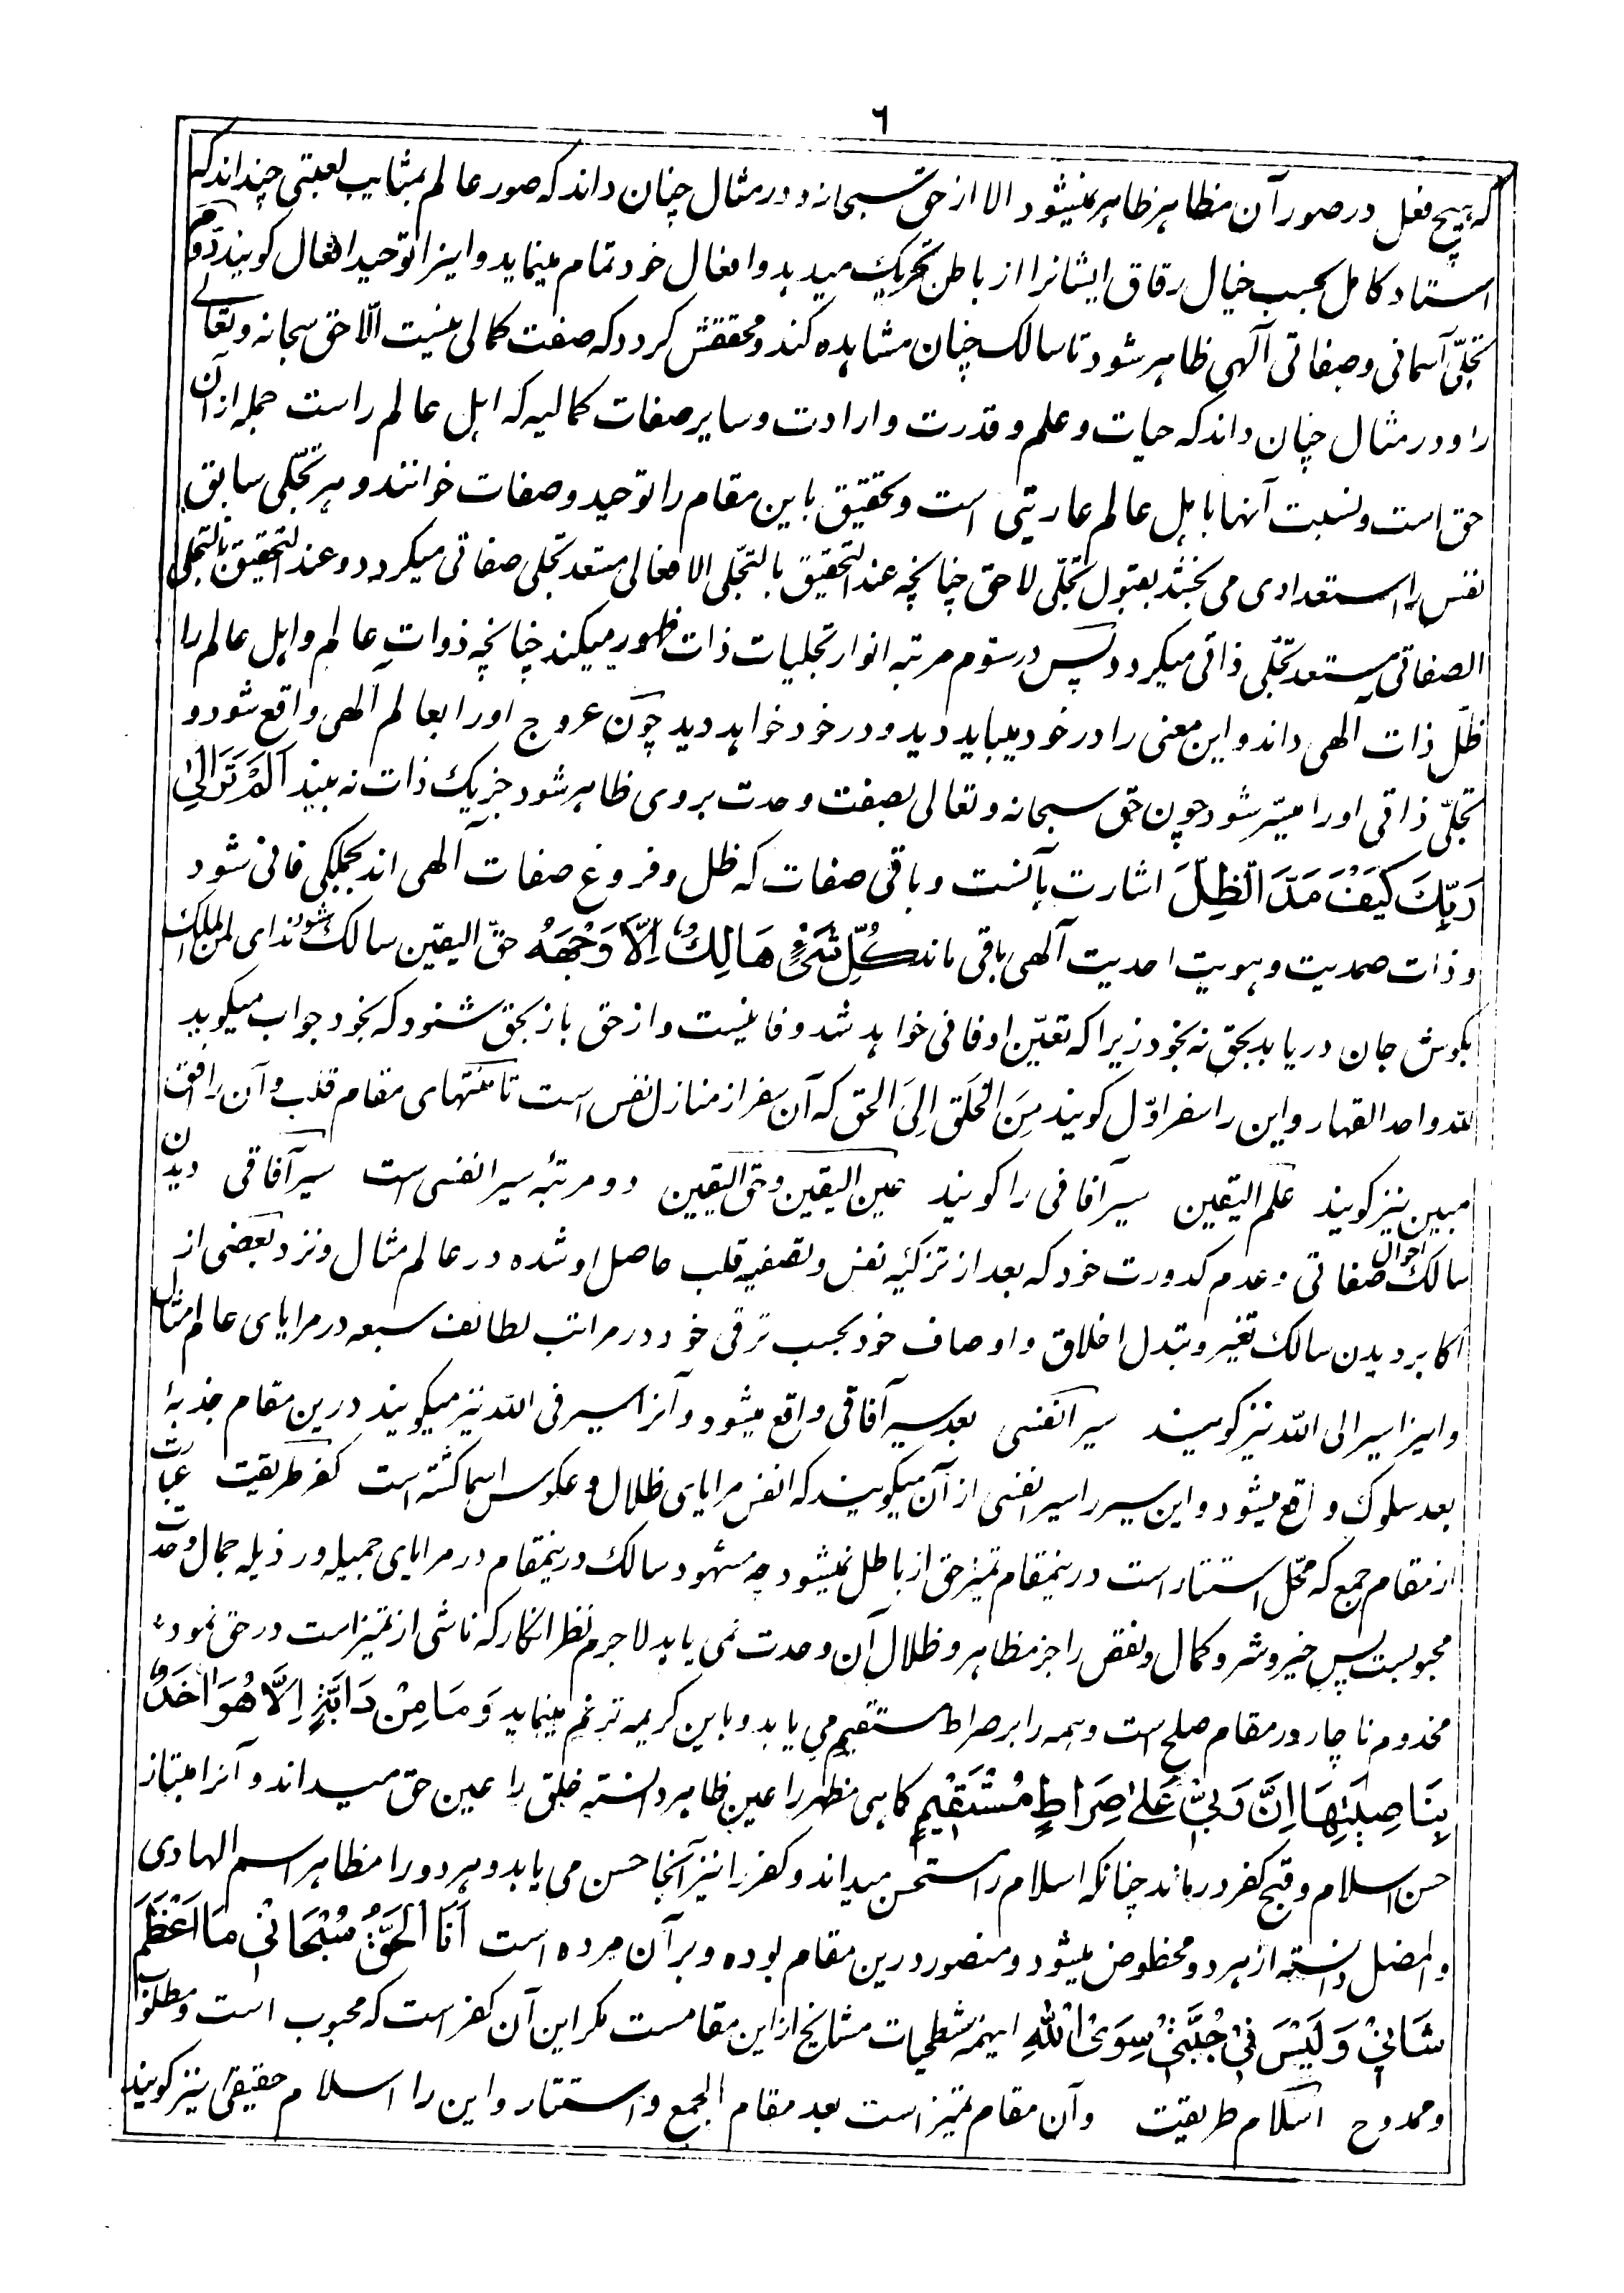 ٦
که هیچ فعل در صور آن مظاهر ظاهر نمیشود الا از حق سبحانه و در مثال چنان داند که صور عالم بمثابه لعبتی چند اند که
استاد کامل بحسب خیال رقاق ایشانرا از باطن تحریک میدهد و افعال خود تمام مینماید و اینرا توحید افعال گویند دوم
تجلّی آسمائی و صفاتی آلهی ظاهر شود تا سالک چنان مشاهده کند و محققش گردد که صفت کمالی نیست الّا حق سبحانه و تعالے
را و در مثال چنان داند که حیات و علم و قدرت و ارادت و سایر صفات کمالیه که اهل عالم راست جمله از آن
حق است و نسبت آنها باهل عالم عاریتی است و تحقیق باین مقام را توحید و صفات خوانند و هر تجلّی سابق
نفس را استعدادی می بخشد بقبول تجلّی لاحق چنانچه عند التحقیق بالتجلّی الافعالی مستعد تجلی صفاتی میگردد و عند التحقیق بالتجلی
الصفاتی مستعد تجلّی ذاتی میگردد پس در سوم مرتبه انوار تجلیات ذات ظهور میکند چنانچه ذوات عالم و اهل عالم را
ظلّ ذات الهی داند و این معنی را در خود میباید دید و در خود خواهد دید چون عروج او را بعالم آلهی واقع شود و
تجلّی ذاتی او را میسّر شود چون حق سبحانه و تعالی بصفت وحدت بروی ظاهر شود جز یک ذات نه بیند اَلَمْ تَرَ اِلٰی
رَبِّكَ كَيْفَ مَدَّ الظِّلَّ اشارت بآنست و باقی صفات که ظل و فروغ صفات آلهی اند بکلی فانی شود
و ذات صمدیت و هویت احدیت آلهی باقی ماند كُلُّ شَيْءٍ هَالِكٌ اِلَّا وَجْهَهُ حقّ الیقین سالک شود ندای لمن الملک
بگوش جان دریابد بحق نه بخود زیرا که تعیّن او فانی خواهد شد و فانیست و از حق باز بحق شنود که بخود جواب میگوید
لله واحد القهار و این را سفر اوّل گویند مِنَ الْخَلَقِ اِلَی الحق که آن سفر از منازل نفس است تا منتهای مقام قلب و آن را افق
مبین نیز گویند علم الیقین سیر آفاقی را گویند عین الیقین و حق الیقین دو مرتبه سیر انفسی است سیر آفاقی دیدن
سالک احوال صفاتی و عدم کدورت خود که بعد از تزکیه نفس و تصفیه قلب حاصل او شده در عالم مثال و نزد بعضی از
اکابر دیدن سالک تغیر و تبدل اخلاق و اوصاف خود بحسب ترقی خود در مراتب لطائف سبعه در مرایای عالم مثال
و اینرا سیر الی الله نیز گویند سیر انفسی بعد سیر آفاقی واقع میشود و آنرا سیر فی الله نیز میگویند درین مقام جذبهٔ
بعد سلوک واقع میشود و این سیر را سیر انفسی از آن میگویند که انفس مرایای ظلال و عکوس اسما گشته است کفر طریقت عبارت
از مقام جمع که محلّ استتار است درینمقام تمیز حق از باطل نمیشود چه مشهود سالک درینمقام در مرایای جمیله و رذیله جمال وحدت
محبوبست پس خیر و شر و کمال و نقص را جز مظاهر و ظلال آن وحدت نمی یابد لاجرم نظر انکار که ناشی از تمیز است در حق نموده
مخدوم ناچار در مقام صلح است و همه را بر صراط مستقیم می یابد و باین کریمه ترنم مینماید وَمَا مِنْ دَابَّةٍ اِلَّا هُوَ اٰخِذٌ
بِنَاصِيَتِهَا اِنَّ رَبِّيْ عَلٰى صِرَاطٍ مُسْتَقِيْمٍ گاهی مظهر را عین ظاهر دانسته خلق را عین حق میداند و آنرا میتاز
حسن اسلام و قبح کفر در ماند چنانکه اسلام را مستحسن میداند و کفر را نیز آنجا حسن می یابد و هر دو را مظاهر اسم الهادی
و المضل دانسته از هر دو محظوظ میشود و منصور درین مقام بوده و برآن مرده است اَنَا الْحَقُّ سُبْحَانِيْ مَا اَعْظَمَ
شَانِيْ وَلَيْسَ فِيْ جُبَّتِيْ سِوَى اللهِ اینهمه شطحیات مشایخ از این مقامست مگر این آن کفر است که محبوب است و مطلوب
و ممدوح اسلام طریقت و آن مقام تمیز است بعد مقام الجمع و استتار و این را اسلام حقیقی نیز گویند